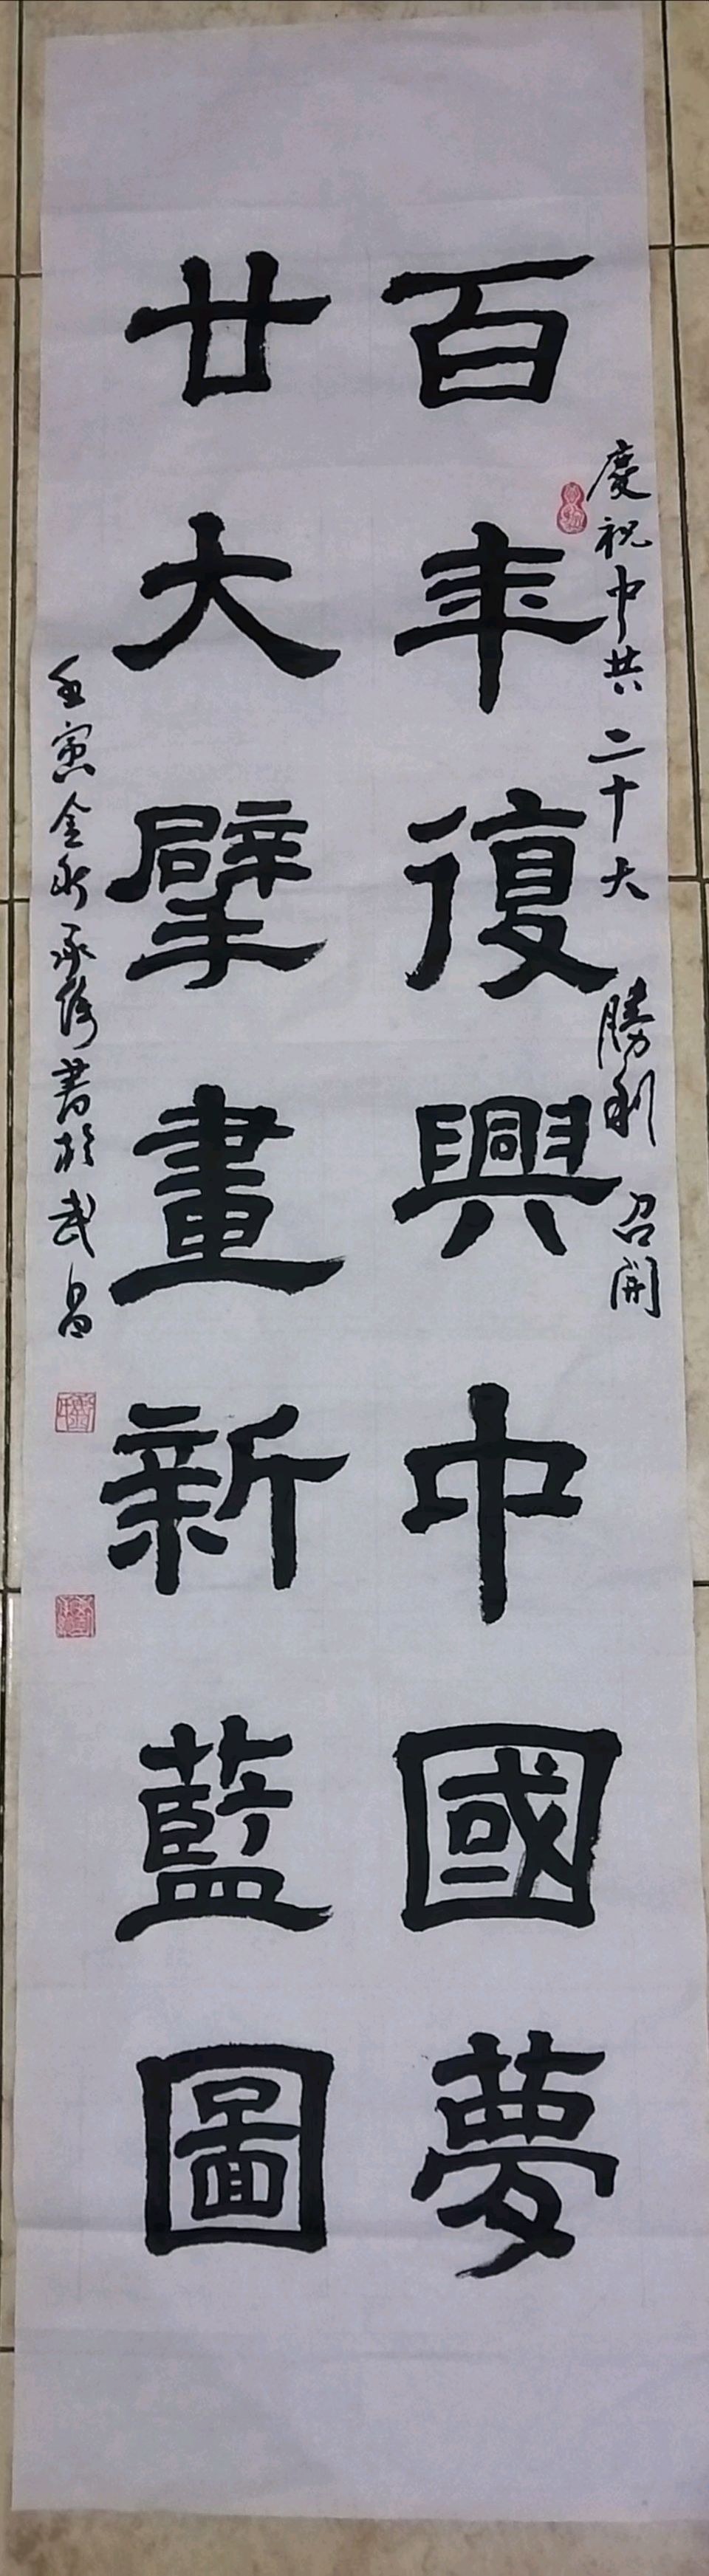 慶祝中共二十大勝利召開
百年復興中國夢
廿大擘畫新藍圖
壬寅金秋承偉書於武昌